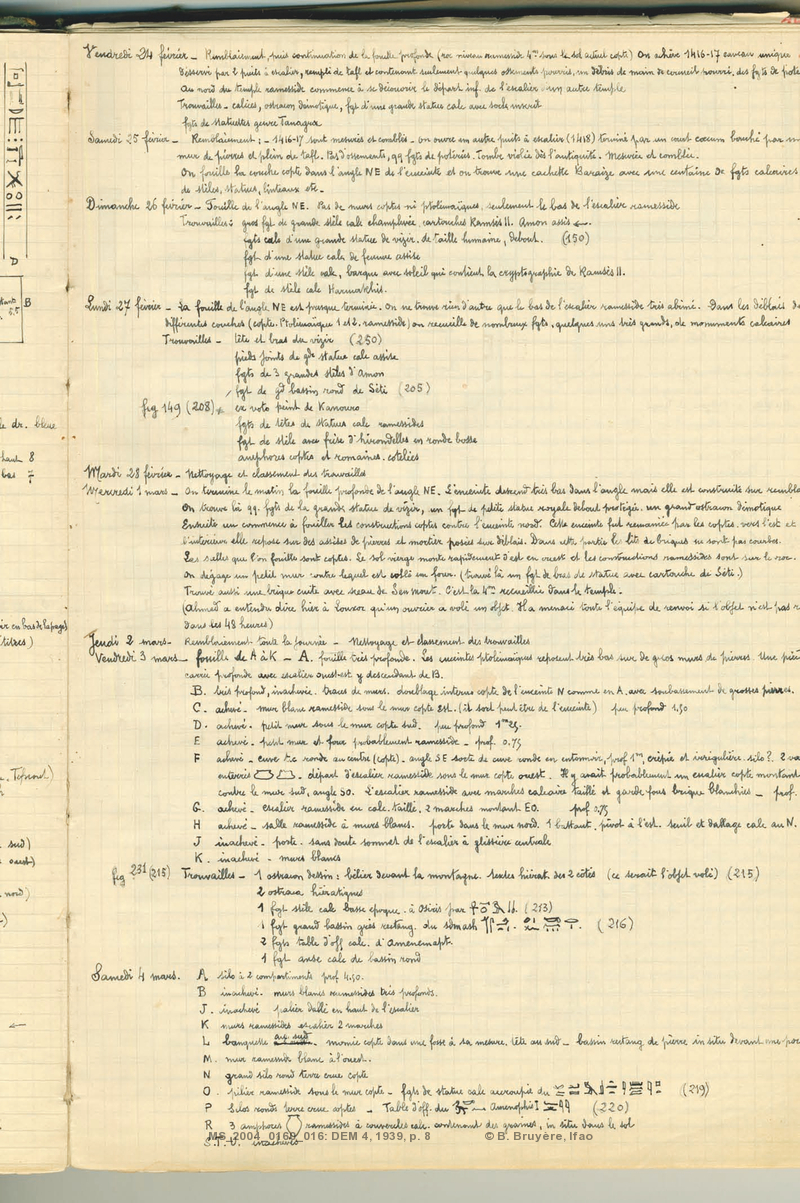 Vendredi 24 février – Remblaiement, puis continuation de la fouille profonde (roc niveau ramesside 4m sous le sol actuel copte) On achève 1416-17 caveau unique
desservi par 1 puits à escalier, rempli de tafl et contenant seulement quelques ossements pourris, un débris de main de cercueil pourri, des fgts de
Au nord du temple ramesside commence à se découvrir le départ inf. de l'escalier un autre temple
Trouvailles – calices, ostracon démotique, fgt d'une grande statue calc avec socle inscrit
fgts de statuettes genre Tanagra
Samedi 25 février – Remblaiement : – 1416-17 sont mesurés et comblés – On ouvre un autre puits à escalier (1418) terminé par un court caecum bouché par
mur de pierres et plein de tafl. Pas d'ossements, qq fgts de poteries. Tombe violée dès l'antiquité. Mesurée et comblée.
On fouille la couche copte dans l'angle NE de l'enceinte et on trouve une cachette Baraize avec une centaine de fgts calcaires
de stèles, statues, linteaux etc.
Dimanche 26 février – Fouille de l'angle NE. Pas de murs coptes ni ptolémaïques, seulement le bas de l'escalier ramesside
Trouvailles : gros fgt de grande stèle calc champlevée, cartouches Ramsès II. Amon assis ←.
fgts calc d'une grande statue de vizir, de taille humaine, debout. (150)
fgt d'une statue calc de femme assise
fgt d'une stèle calc, barque avec soleil qui contient la cryptographie de Ramsès II.
fgt de stèle calc Harmakhis.
Lundi 27 février – La fouille de l'angle NE est presque terminée. On ne trouve rien d'autre que le bas de l'escalier ramesside très abîmé. Dans les déblais
différentes couches (copte. Ptolémaïque 1 et 2. ramesside) on recueille de nombreux fgts, quelques uns très grands, de monuments calcaires
Trouvailles – tête et bras du vizir (250)
pieds joints de gde statue calc assise
fgts de 3 grandes stèles d'Amon
fgt de gd bassin rond de Séti (205)
fig 149 (208) ex voto peint de Kanouro
fgts de têtes de statues calc ramessides
fgt de stèle avec frise d'hirondelles en ronde bosse
amphores coptes et romaines. cotelées
Mardi 28 février – Nettoyage et classement des trouvailles
Mercredi 1 mars – On termine le matin la fouille profonde de l'angle NE. L'enceinte descend très bas dans l'angle mais elle est construite sur
On trouve ici qq. fgts de la grande statue de vizir, un fgt de petite statue royale debout un grand ostracon démotique
Ensuite on commence à fouiller les constructions coptes contre l'enceinte nord. Cette enceinte fut remaniée par les coptes. vers l'est et
l'intérieur elle repose sur des assises de pierres et mortier posées sur déblais. Dans cette partie les lits de briques ne sont pas courbes.
Les salles que l'on fouille sont coptes. Le sol vierge monte rapidement d'est en ouest et les constructions ramessides sont sur le roc.
On dégage un petit mur contre lequel est collé un four. (trouvé là un fgt de bras de statue avec cartouche de Séti.)
Trouvé aussi une brique cuite avec sceau de Senmout. C'est la 4me recueillie dans le temple.
(Ahmed a entendu dire hier à Louxor qu'un ouvrier a volé un objet. Il a menacé toute l'équipe de renvoi si l'objet n'est pas
dans les 48 heures)
Jeudi 2 mars – Remblaiement toute la journée – Nettoyage et classement des trouvailles
Vendredi 3 mars – fouille de A à K – A. fouille très profonde. Les enceintes ptolémaïques reposent très bas sur de gros murs de pierres. Une
carrée profonde avec escalier ouest-est y descendant de B.
B. très profond, inachevé. traces de murs. doublage interne copte de l'enceinte N comme en A. avec soubassement de grosses pierres.
C. achevé. mur blanc ramesside sous le mur copte Est. (il sort peut être de l'enceinte) peu profond 1.50
D. achevé. petit mur sous le mur copte sud. peu profond 1m25.
E achevé. petit mur et four probablement ramesside – prof. 0.75
F achevé – cuve tc ronde au centre (copte). angle SE sorte de cuve ronde en entonnoir, prof 1m, crépie et irrégulière. silo ? 2
enterrés – départ d'escalier ramesside sous le mur copte ouest. Il y avait probablement un escalier copte montant
contre le mur sud, angle SO. L'escalier ramesside avec marches calcaire taillé et garde fous brique blanchies – prof.
G. achevé – escalier ramesside en calc. taillé, 2 marches montant EO. prof 0.75
H achevé – salle ramesside à murs blancs. porte dans le mur nord. 1 battant, pivot à l'est. seuil et dallage calc au N.
J inachevé – porte. sans doute sommet de l'escalier à glissière centrale
K. inachevé – murs blancs
fig 231 (215) Trouvailles – 1 ostracon dessin : bélier devant la montagne. textes hiérat. des 2 côtés (ce serait l'objet volé) (215)
2 ostraca hiératiques
1 fgt stèle calc basse époque. à Osiris par (213)
1 fgt grand bassin grès rectang. du (216)
2 fgts table d'off calc. d'Amenemapt.
1 fgt anse calc de bassin rond
Samedi 4 mars. A silo à 2 compartiments prof 4.50.
B inachevé. murs blancs ramessides très profonds.
J. inachevé palier dallé en haut de l'escalier
K murs ramessides escalier 2 marches
L banquette au sud. momie copte dans une fosse à sa mesure, tête au sud – bassin rectang. de pierre in situ devant une
M. mur ramesside blanc à l'ouest.
N grand silo rond terre crue copte
O. pilier ramesside sous le mur copte – fgts de statue calc accroupie du (219)
P Silos ronds terre crue coptes – Table d'off. du Amenophis I (220)
R 3 amphores ramessides à couvercles calc. contenant des graines, in situ dans le sol
S.T.U. inachevés
MS_2004_0168_016: DEM 4, 1939, p. 8 © B. Bruyère, Ifao
A
B
5.5
le dr. bleue
haut 8
bas 7
en bas de la page)
titres)
sud)
ouest)
nord)
←